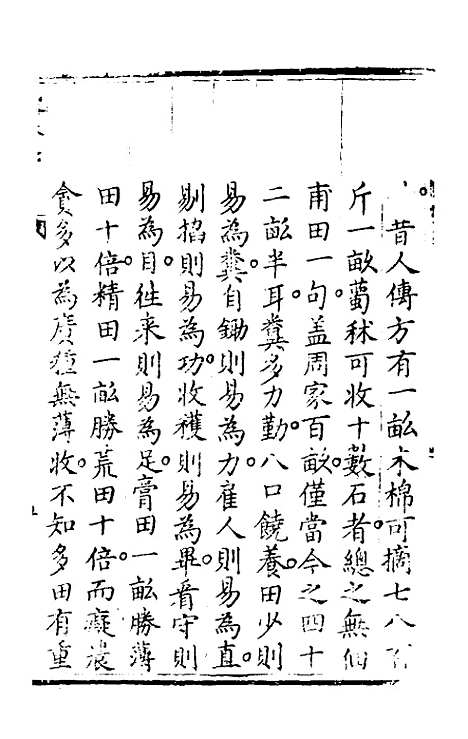 昔人傳方有一畝木棉可摘七八百
斤一畝蔔秫可收十數石者總之無個
甫田一句盖周家百畝僅當今之四十
二畝半耳糞多力勤八口饒養田少則
易為糞自鋤則易為力雇人則易為直
剔掐則易為功收穫則易為畢看守則
易為目徃来則易為足膏田一畝勝薄
田十倍精田一畝勝荒田十倍而癡農
貪多以為廣種無薄收不知多田有重
五